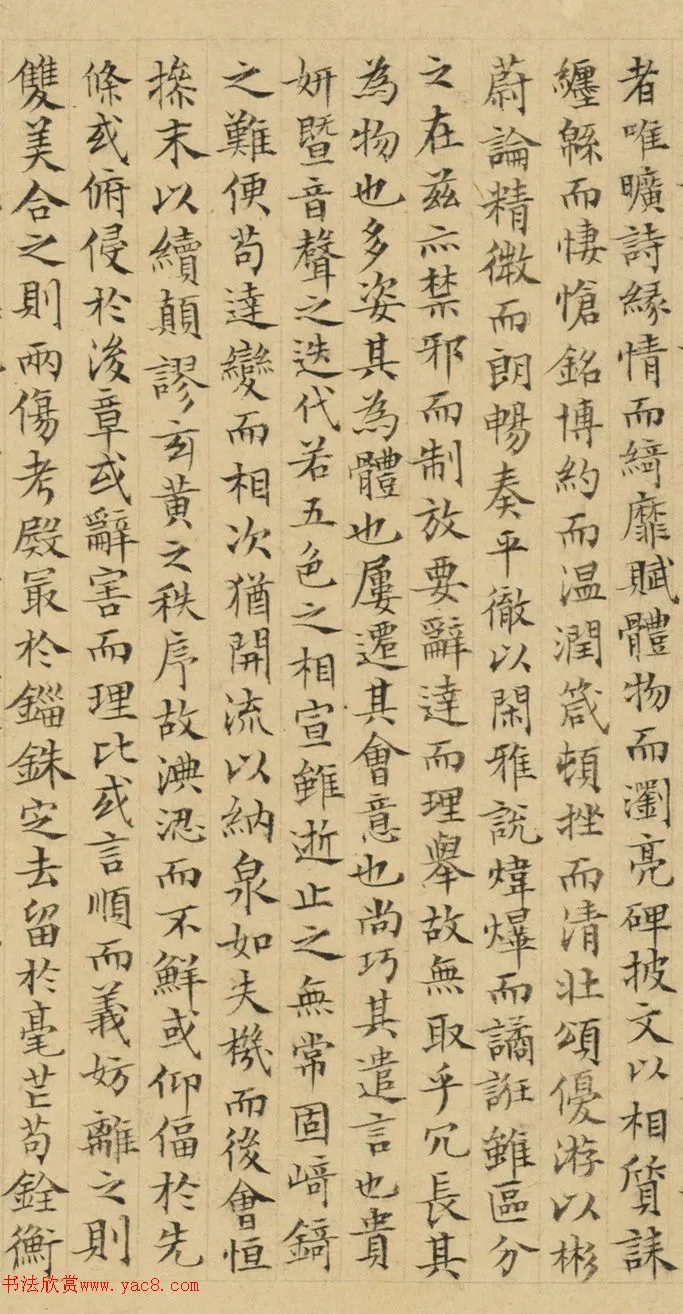 者唯曠詩緣情而綺靡賦體物而瀏亮碑披文以相質誄
纏緜而悽愴銘博約而温潤箴頓挫而清壯頌優游以彬
蔚論精微而朗暢奏平徹以閑雅說煒燁而譎誑雖區分
之在茲亦禁邪而制放要辭達而理舉故無取乎冗長其
為物也多姿其為體也屢遷其會意也尚巧其遣言也貴
妍暨音聲之迭代若五色之相宣雖逝止之無常固崎錡
之難便苟達變而相次猶開流以納泉如失機而後會恒
操末以續顛謬玄黃之秩序故淟涊而不鮮或仰偪於先
條或俯侵於後章或辭害而理比或言順而義妨離之則
雙美合之則兩傷考殿最於錙銖定去留於毫芒苟銓衡
书法欣赏www.yac8.com